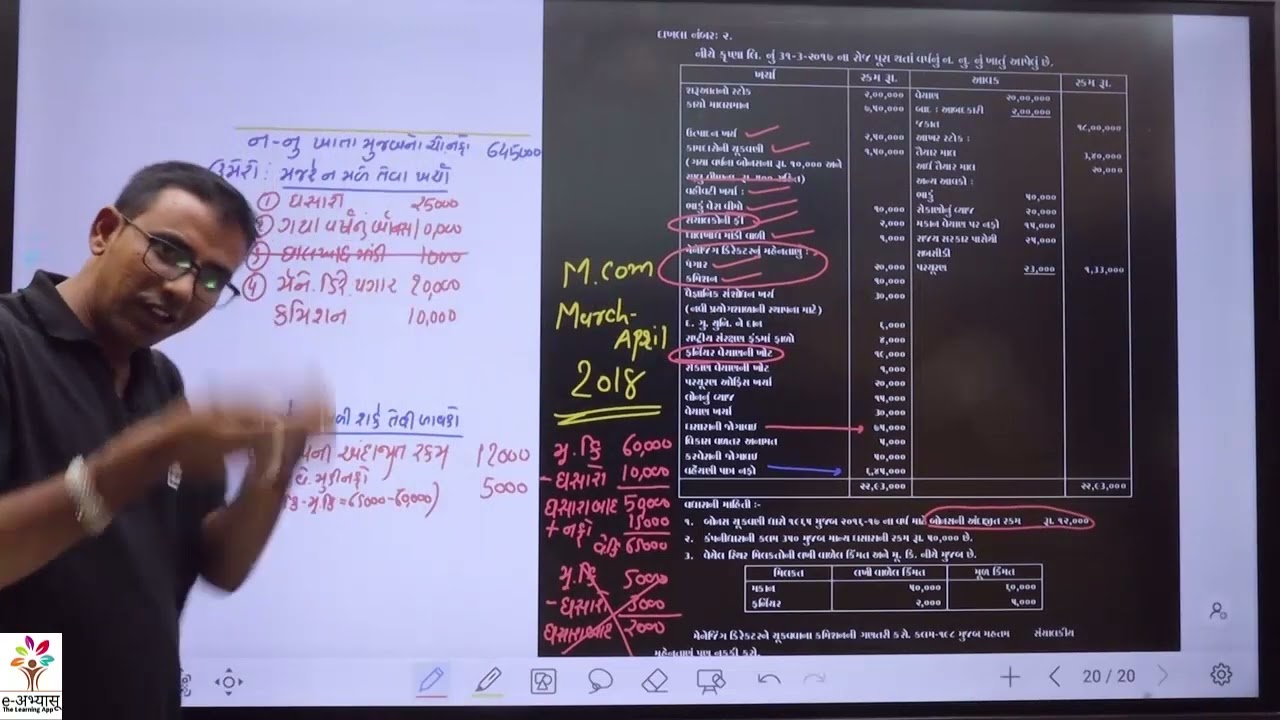 દાખલા નંબર: ૨.
નીચે કૃષ્ણા લિ. નું ૩૧-૩-૨૦૧૭ ના રોજ પૂરા થતાં વર્ષનું ન. નુ. નું ખાતું આપેલું છે.
ખર્ચા રકમ રૂા. આવક રકમ રૂા.
શરૂઆતનો સ્ટોક ૨,૦૦,૦૦૦ વેચાણ ૨૦,૦૦,૦૦૦
કાચો માલસામાન ૭,૫૦,૦૦૦ બાદ : આબકારી ૨,૦૦,૦૦૦
જકાત ૧૮,૦૦,૦૦૦
ઉત્પાદન ખર્ચ ૨,૫૦,૦૦૦ આખર સ્ટોક :
કામદારોની ચૂકવણી ૧,૫૦,૦૦૦ તૈયાર માલ ૩,૪૦,૦૦૦
(ગયા વર્ષના બોનસના રૂા. ૧૦,૦૦૦ અને અર્ધ તૈયાર માલ ૨૦,૦૦૦
અન્ય આવકો :
વહીવટી ખર્ચા : ભાડું ૫૦,૦૦૦
ભાડું વેરા વીમો ૧૦,૦૦૦ રોકાણોનું વ્યાજ ૨૦,૦૦૦
સંચાલકોની ફી ૨,૦૦૦ મકાન વેચાણ પર નફો ૧૫,૦૦૦
ઘાલખાધ માંડી વાળી ૧,૦૦૦ રાજ્ય સરકાર પાસેથી ૨૫,૦૦૦
મેનેજિંગ ડિરેક્ટરનું મહેનતાણું : સબસીડી
પગાર ૨૦,૦૦૦ પરચૂરણ ૨૩,૦૦૦ ૧,૩૩,૦૦૦
કમિશન ૧૦,૦૦૦
વૈજ્ઞાનિક સંશોધન ખર્ચ ૩૦,૦૦૦
(નવી પ્રયોગશાળાની સ્થાપના માટે)
દ. ગુ. યુનિ. ને દાન ૬,૦૦૦
રાષ્ટ્રીય સંરક્ષણ ફંડમાં ફાળો ૪,૦૦૦
ફર્નિચર વેચાણની ખોટ
રોકાણ વેચાણની ખોટ ૧,૦૦૦
પરચૂરણ ઓફિસ ખર્ચા ૨૦,૦૦૦
લોનનું વ્યાજ ૧૫,૦૦૦
વેચાણ ખર્ચા ૩૦,૦૦૦
ઘસારાની જોગવાઈ ૭૫,૦૦૦
વિકાસ વળતર અનામત ૫,૦૦૦
કરવેરાની જોગવાઈ ૫૦,૦૦૦
વહેંચણી પાત્ર નફો ૬,૪૫,૦૦૦
૨૨,૯૩,૦૦૦ ૨૨,૯૩,૦૦૦
વધારાની માહિતી :-
૧. બોનસ ચૂકવણી ધારો ૧૯૬૫ મુજબ ૨૦૧૬-૧૭ ના વર્ષ માટે બોનસની અંદાજીત રકમ રૂા. ૧૨,૦૦૦
૨. કંપનીધારાની કલમ ૩૫૦ મુજબ માન્ય ઘસારાની રકમ રૂા. ૫૦,૦૦૦ છે.
૩. વેચેલ સ્થિર મિલકતોની લખી વાળેલ કિંમત અને મૂ. કિં. નીચે મુજબ છે.
મિલકત લખી વાળેલ કિંમત મૂળ કિંમત
મકાન ૫૦,૦૦૦ ૬૦,૦૦૦
ફર્નિચર ૨,૦૦૦ ૫,૦૦૦
મેનેજિંગ ડિરેક્ટરને ચૂકવવાના કમિશનની ગણતરી કરો. કલમ-૧૯૮ મુજબ મહત્તમ સંચાલકીય
મહેનતાણું પણ નક્કી કરો.
ન-નુ ખાતા મુજબનો ચોનફો 645000
ઉમેરો : મજરે ન મળે તેવા ખર્ચા
① ઘસારો 25000
② ગયા વર્ષનું બોનસ 10,000
③ ઘાલખાધ માંડી 1000
④ મેને. ડિરે. પગાર 20,000
કમિશન 10,000
શકે તેવી બાબતો
અંદાજીત રકમ 12000
મુડીનફો 5000
- મૂ.કિં = 65000-60,000)
M.com
March-
April
2018
મૂ. કિં 60,000
- ઘસારો 10,000
ઘસારાબાદ 50,000
+ નફો 15000
વે.કિં 65000
મૂ. કિં 5000
- ઘસારો 3000
ઘસારાબાદ 2000
20 / 20
e-અभ्यासू
The Learning App